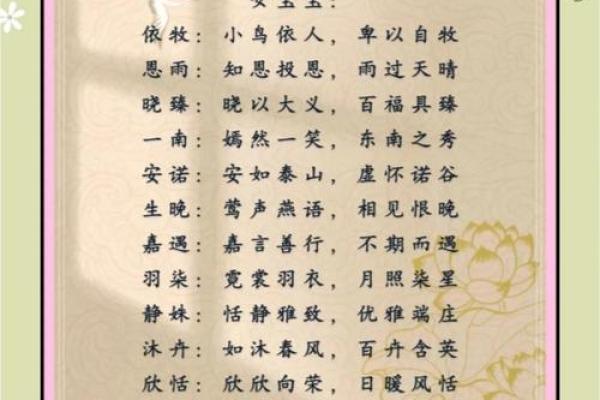 女宝宝:
依牧: 小鸟依人, 卑以自牧
恩雨: 知恩投恩, 雨过天晴
晓臻: 晓以大义, 百福具臻
一南: 嫣然一笑, 东南之秀
安诺: 安如泰山, 虚怀诺谷
生晚: 莺声燕语, 相见恨晚
嘉遇: 嘉言善行, 不期而遇
羽柒: 霓裳羽衣, 月照柒星
静姝: 恬静雅致, 优雅端庄
沐卉: 如沐春风, 百卉含英
欣恬: 欣欣向荣, 日暖风恬